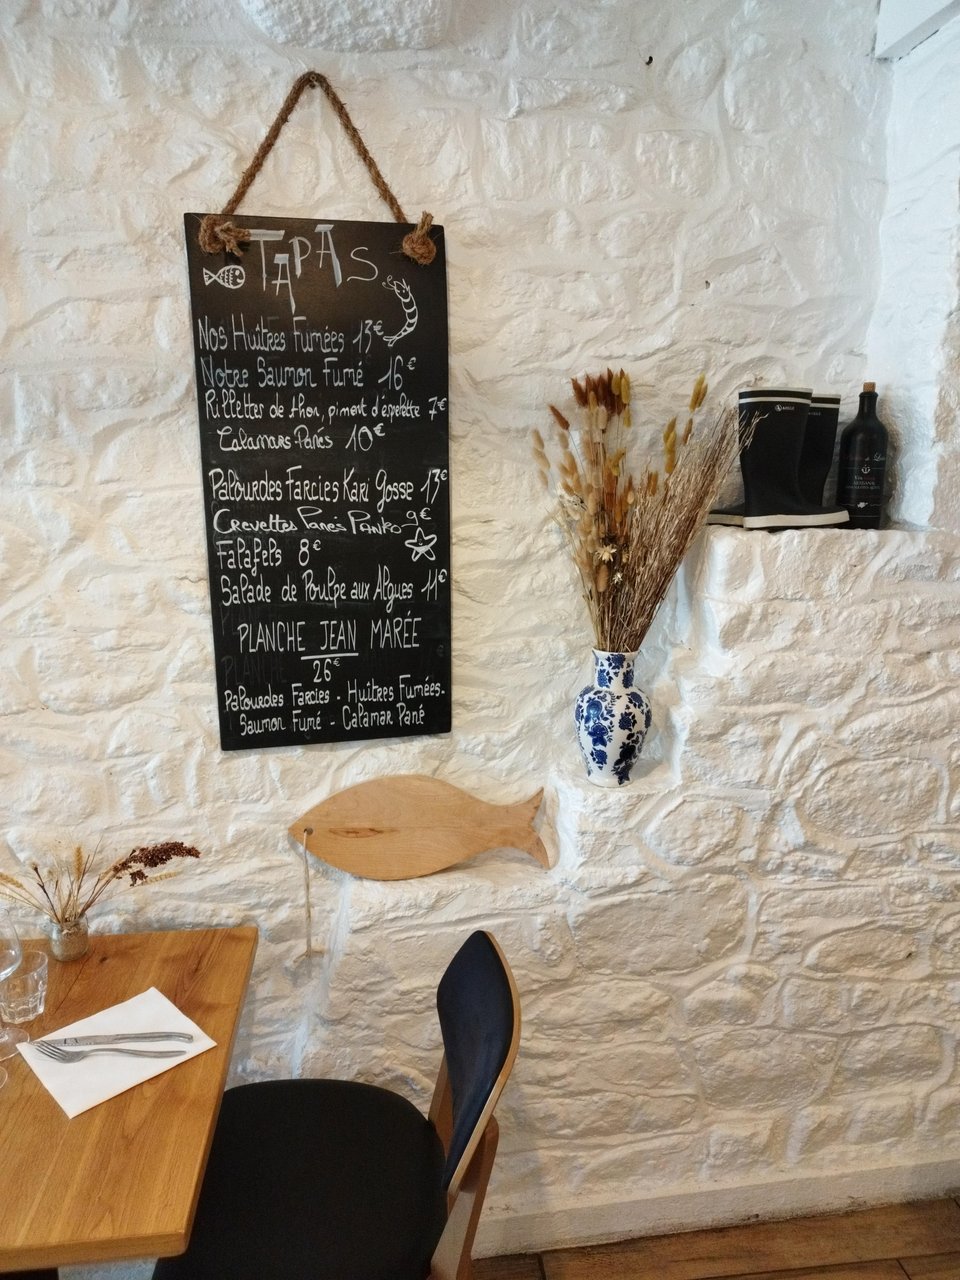 TAPAS
Nos Huîtres Fumées 13€
Notre Saumon Fumé 16€
Rillettes de thon, piment d'espelette 7€
Calamars Panés 10€
Palourdes Farcies Kari Gosse 13€
Crevettes Panés Panko 9€
Falafels 8€
Salade de Poulpe aux Algues 11€
PLANCHE JEAN MARÉE
26€
Palourdes Farcies - Huîtres Fumées -
Saumon Fumé - Calamar Pané
AIGLE